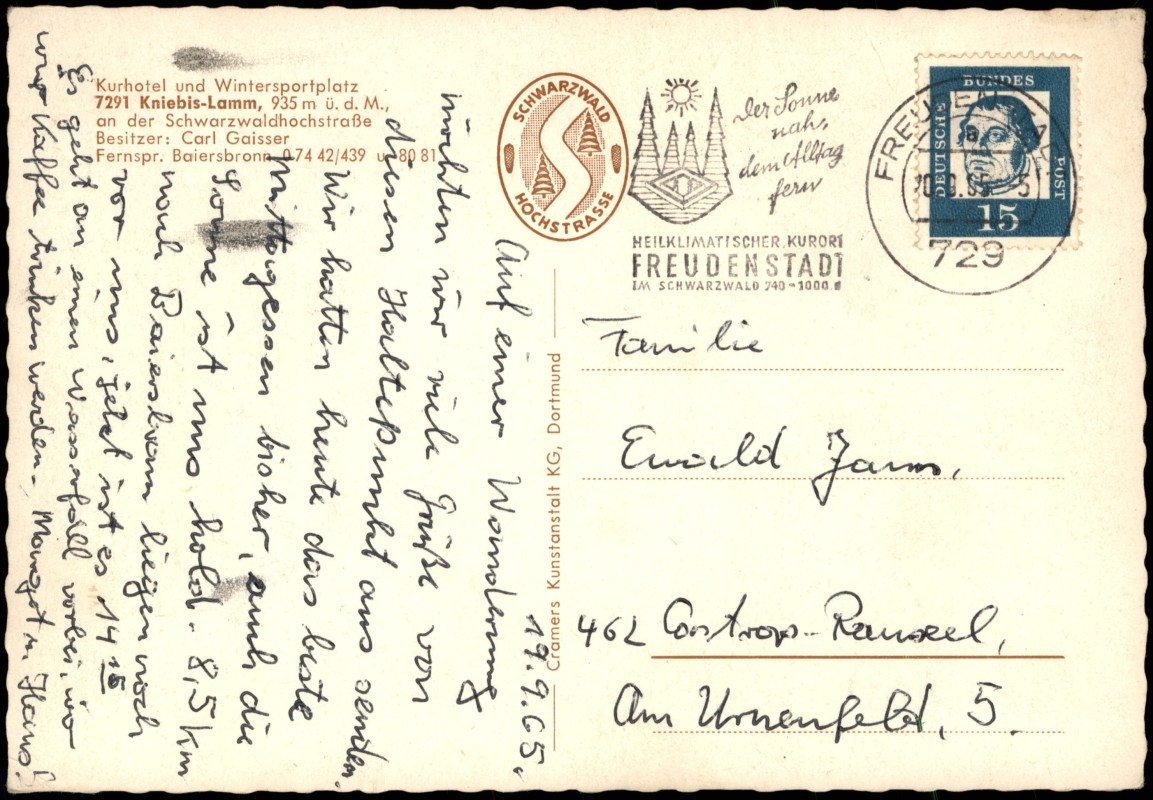 Kurhotel und Wintersportplatz
7291 Kniebis-Lamm, 935 m ü. d. M.,
an der Schwarzwaldhochstraße
Besitzer: Carl Gaisser
Fernspr. Baiersbronn 0 74 42/439 u. 80 81
SCHWARZWALD
HOCHSTRASSE
Der Sonne
nah,
dem Alltag
fern
HEILKLIMATISCHER KURORT
FREUDENSTADT
IM SCHWARZWALD 740-1000 m
FREUDEN
a
729
DEUTSCHE
BUNDES
POST
15
19.9.65.
Auf einer Wanderung
möchten wir viele Grüße von
diesem Haltepunkt aus senden.
Wir hatten heute das beste
Mittagessen bisher, auch die
Sonne ist uns hold. 8,5 km
nach Baiersbronn liegen noch
vor uns, jetzt ist es 14 15
Es geht an einen Wasserfall vorbei, wo
wir Kaffee trinken werden. Margot u. Klaus!
Cramers Kunstanstalt KG, Dortmund
Familie
Ewald
462 Castrop-Rauxel,
Am Urnenfeld, 5.